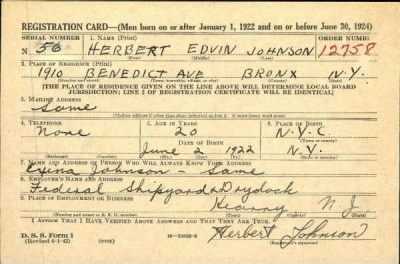 REGISTRATION CARD—(Men born on or after January 1, 1922 and on or before June 30, 1924)
SERIAL NUMBER 1. NAME (Print) ORDER NUMBER
N 56 HERBERT EDVIN JOHNSON 12758
(First) (Middle) (Last)
2. PLACE OF RESIDENCE (Print)
1910 BENEDICT AVE BRONX N.Y.
(Number and street) (Town, township, village, or city) (County) (State)
[THE PLACE OF RESIDENCE GIVEN ON THE LINE ABOVE WILL DETERMINE LOCAL BOARD
JURISDICTION; LINE 2 OF REGISTRATION CERTIFICATE WILL BE IDENTICAL]
3. MAILING ADDRESS
Same
4. TELEPHONE 5. AGE IN YEARS 6. PLACE OF BIRTH
None 20 N.Y.C.
DATE OF BIRTH
June 2 1922 N.Y.
7. NAME AND ADDRESS OF PERSON WHO WILL ALWAYS KNOW YOUR ADDRESS
Johnson - Same
8. EMPLOYER'S NAME AND ADDRESS
Federal Shipyard & Drydock
9. PLACE OF EMPLOYMENT OR BUSINESS
Kearny N.J.
(Number and street or R. F. D. number) (Town) (County) (State)
I AFFIRM THAT I HAVE VERIFIED ABOVE ANSWERS AND THAT THEY ARE TRUE.
D. S. S. Form 1
(Revised 6-1-42) (over) Herbert Johnson